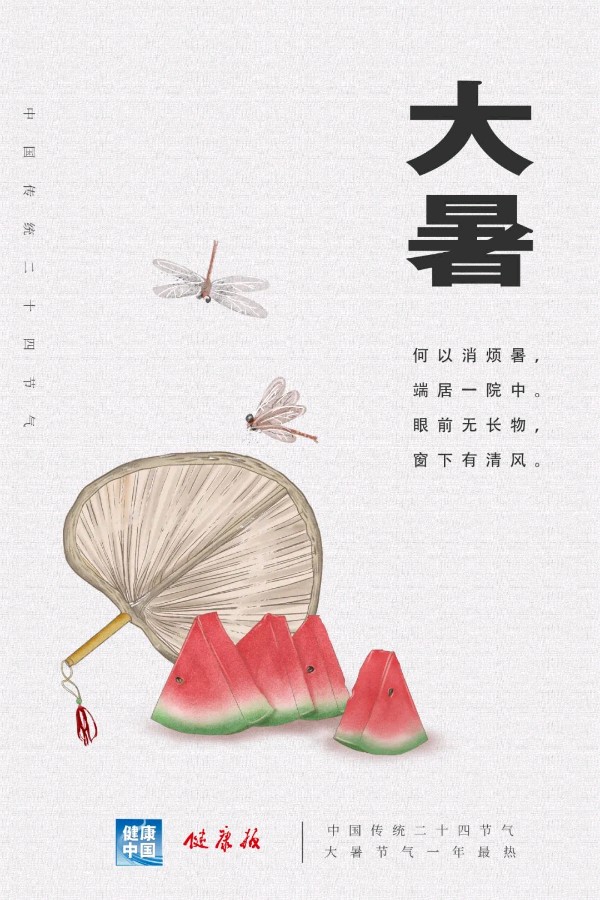 大暑
中国传统二十四节气
何以消烦暑，
端居一院中。
眼前无长物，
窗下有清风。
健康
中国
健康报
中国传统二十四节气
大暑节气一年最热